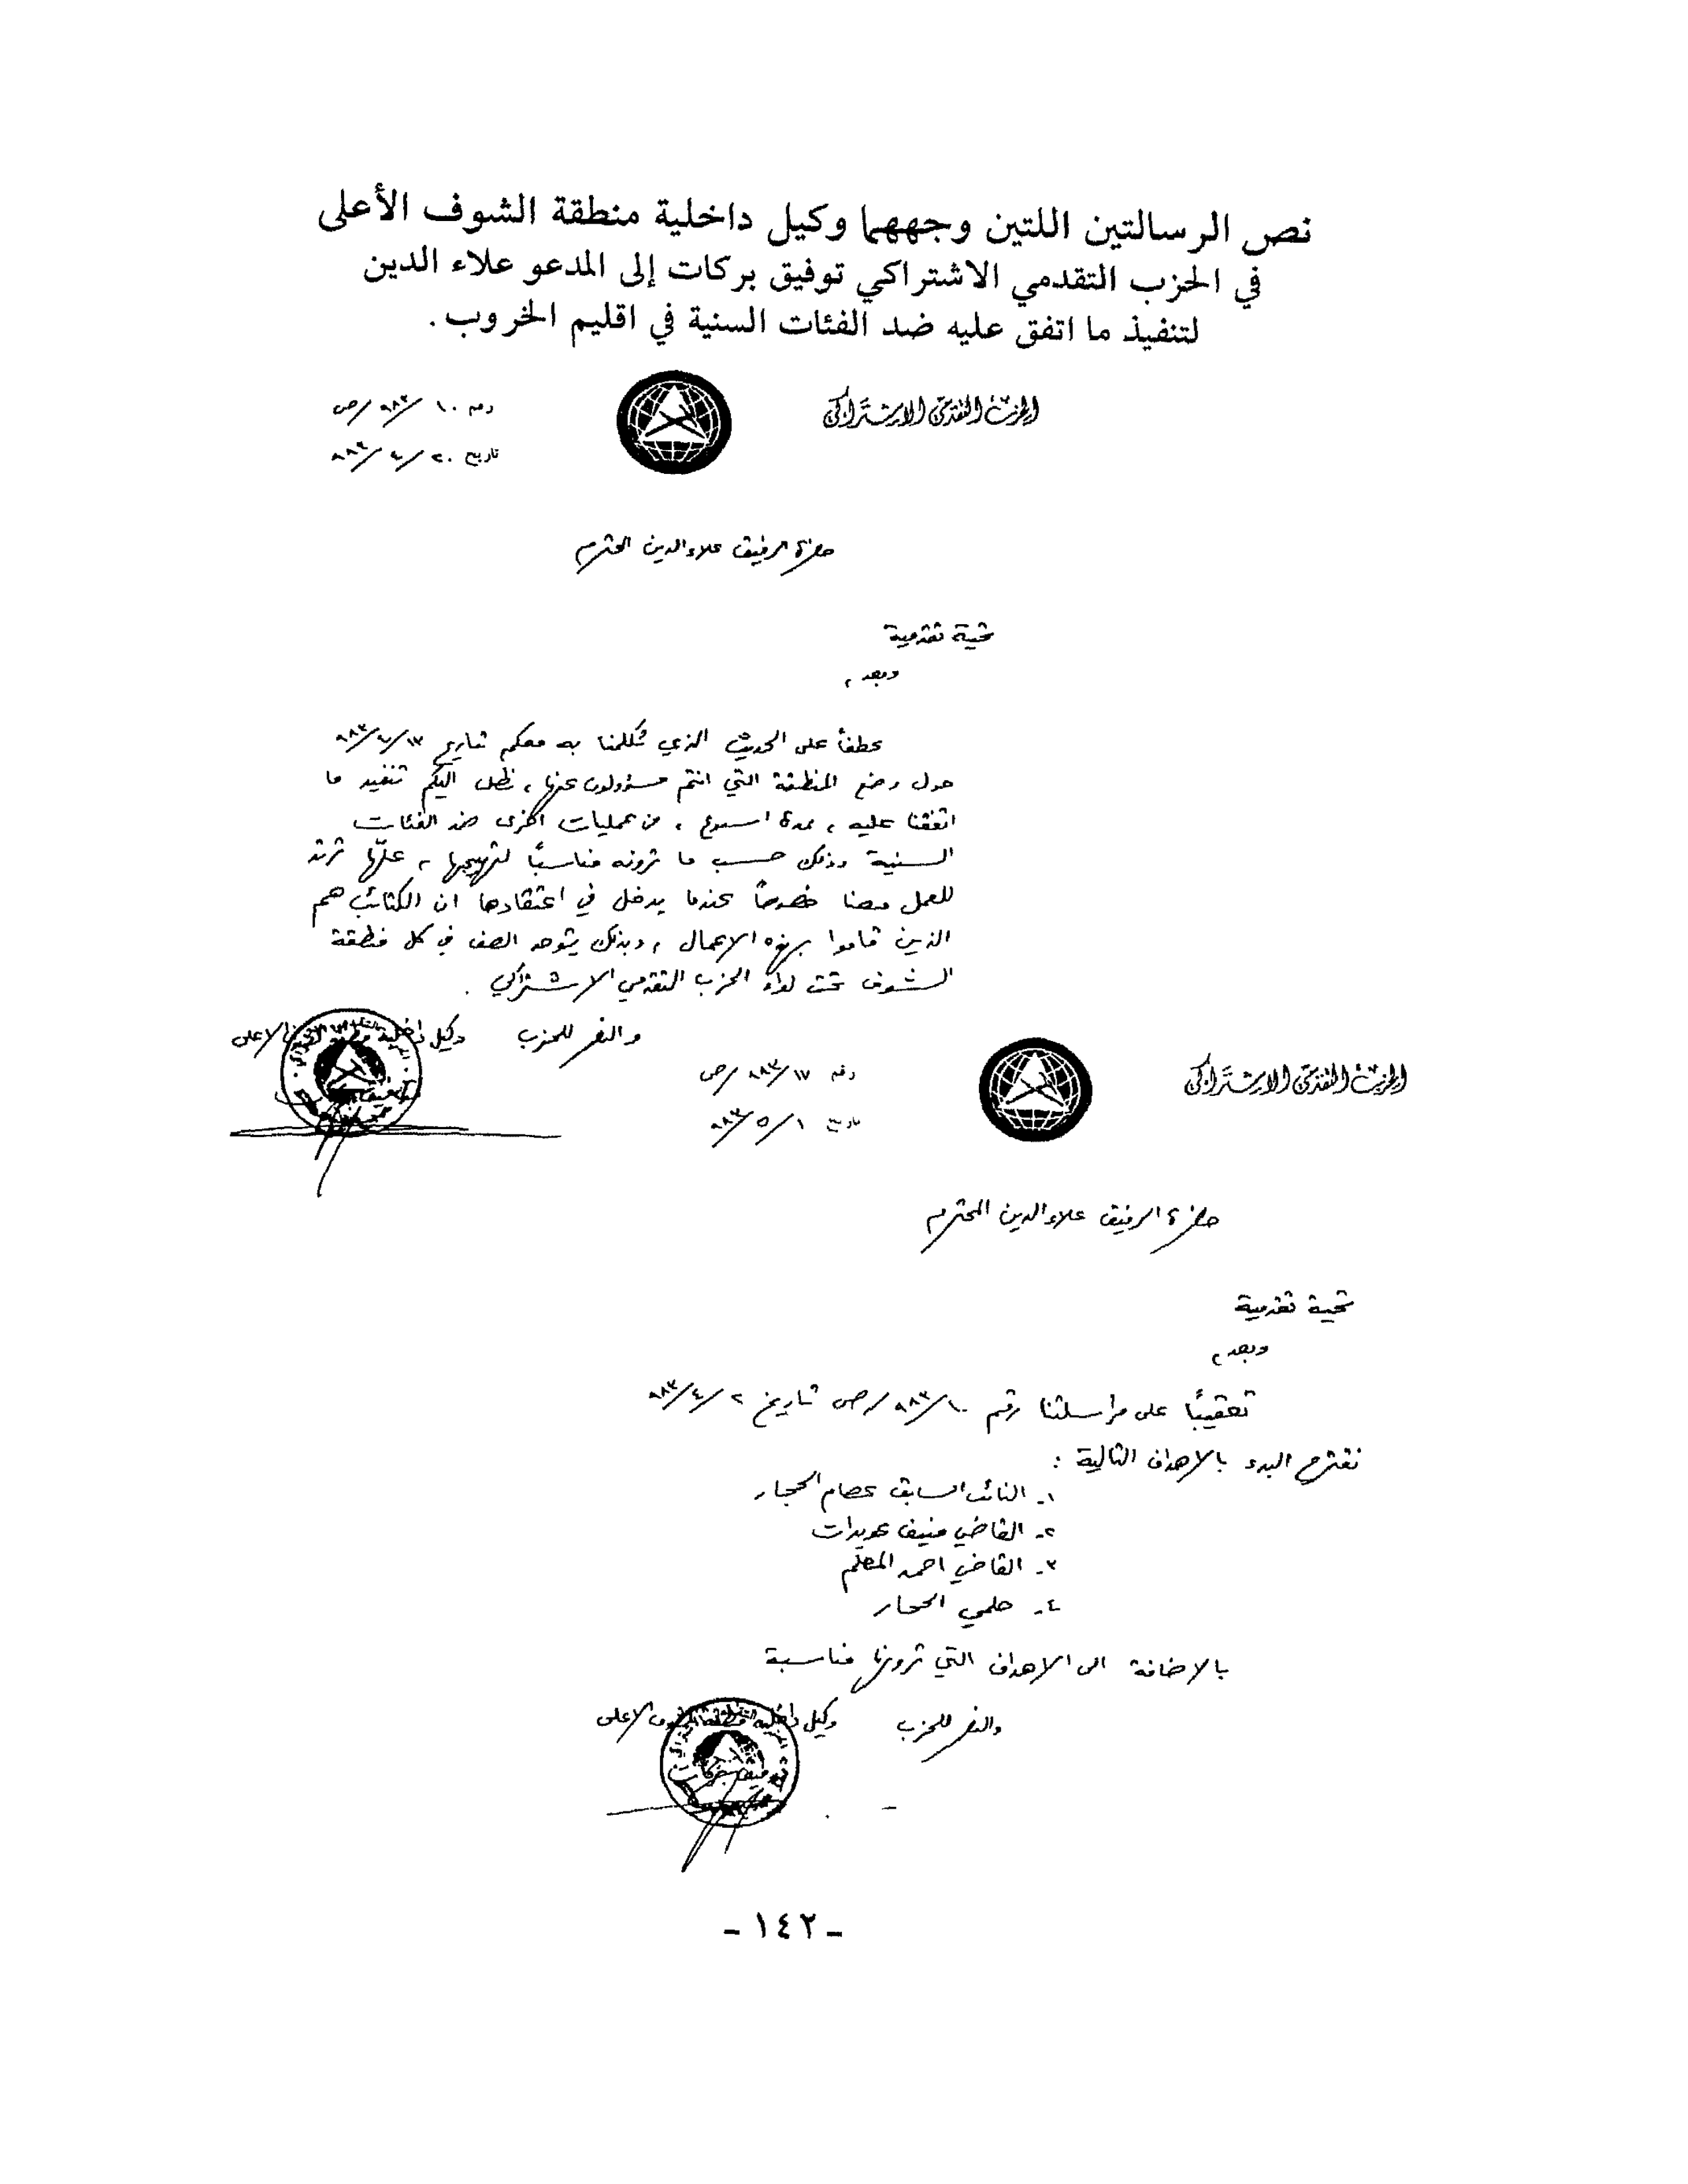 نص الرسالتين اللتين وجههما وكيل داخلية منطقة الشوف الأعلى
في الحزب التقدمي الاشتراكي توفيق بركات إلى المدعو علاء الدين
لتنفيذ ما اتفق عليه ضد الفئات السنية في اقليم الخروب.
الحزب التقدمي الاشتراكي
رقم ١٠/٩٨٣/ص
تاريخ ٢٠/٤/٩٨٣
حضرة الرفيق علاء الدين المحترم
تحية تقدمية
وبعد،
عطفاً على الحديث الذي تكلمنا به معكم بتاريخ
حول وضع المنطقة التي انتم مسؤولون عنها، نطلب اليكم تنفيد ما
اتفقنا عليه، بمدة اسبوع، من عمليات اخرى ضد الفئات
السنية وذلك حسب ما ترونه مناسبًا لتهييجها، علّها ترتد
للعمل معنا خصوصاً عندما يدخل في اعتقادها ان الكتائب هم
الذين قاموا بهذه الاعمال، وبذلك يتوحد الصف في كل منطقة
الشوف تحت لواء الحزب التقدمي الاشتراكي.
والنصر للحزب
وكيل داخلية منطقة الشوف الاعلى
الحزب التقدمي الاشتراكي
رقم ١٧/٩٨٣/ص
تاريخ ١/٥/٩٨٣
حضرة الرفيق علاء الدين المحترم
تحية تقدمية
وبعد،
تعقيبًا على مراسلتنا رقم ١٠/٩٨٣/ص تاريخ ٢/٤/٩٨٣
نقترح البدء بالاهداف التالية :
١- النائب السابق عصام الحجار
٢- القاضي منيف عويدات
٣- القاضي احمد المعلّم
٤- حلمي الحجار
بالاضافة الى الاهداف التي ترونها مناسبة
والنصر للحزب
وكيل داخلية منطقة الشوف الاعلى
توفيق بركات
- ١٤٢ -